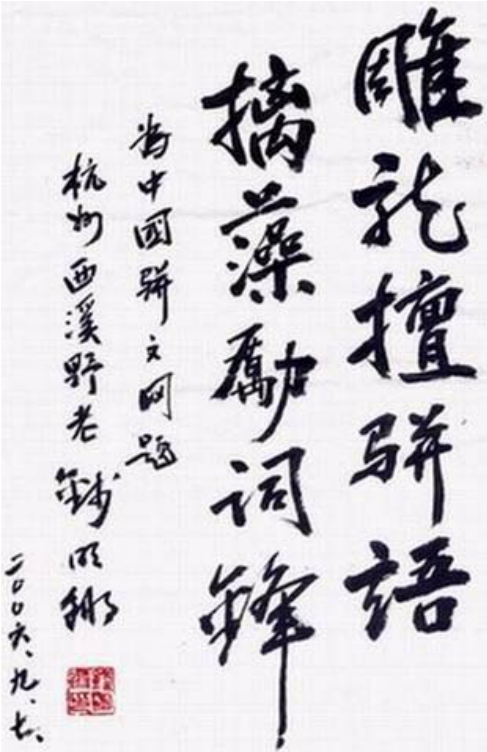 雕龙擅骈語
摛藻勵词鋒
为中國骈文网题
杭州西溪野老 錢明鏘
二〇〇六、九、七、